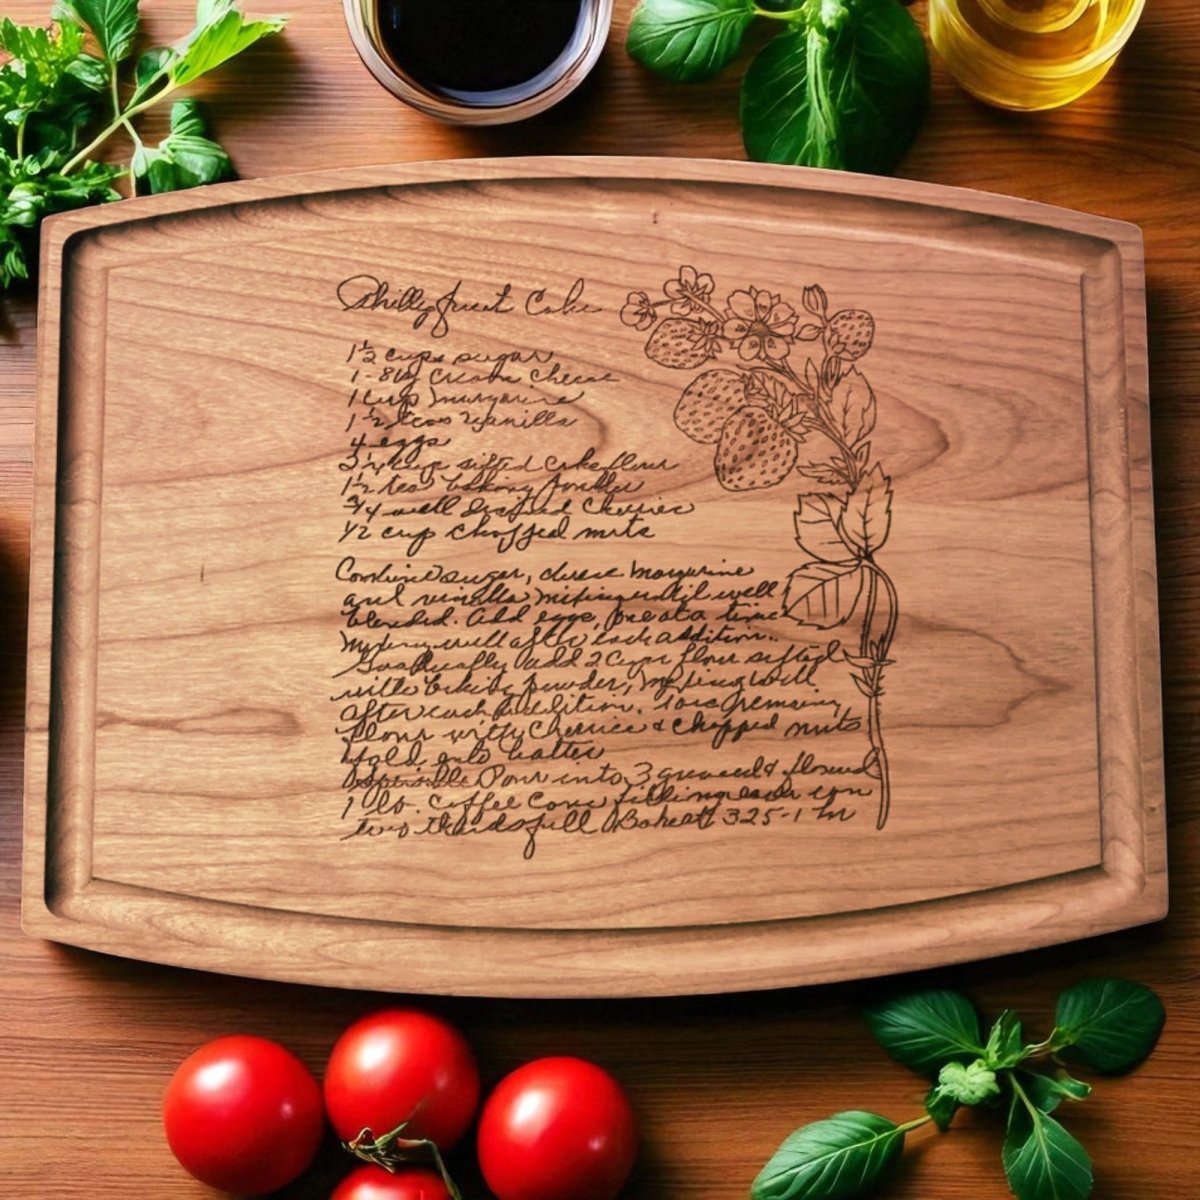 Philly fruit Cake
1 1/2 cups sugar
1-8oz cream cheese
1 cup margarine
1 1/2 teas vanilla
4 eggs
cup sifted cake flour
1 1/2 teas baking powder
3/4 well drained cherries
1/2 cup chopped nuts
Combine sugar, cheese margarine
and vanilla mixing until well
blended. Add eggs, one at a time
mixing well after each addition.
Gradually add 2 cups flour sifted
with baking powder, mixing well
after each addition. Toss remaining
flour with cherries & chopped nuts
fold into batter
Pour into 3 greased & floured
1 lb. coffee cans filling each can
two thirds full Bake at 325-1 hr